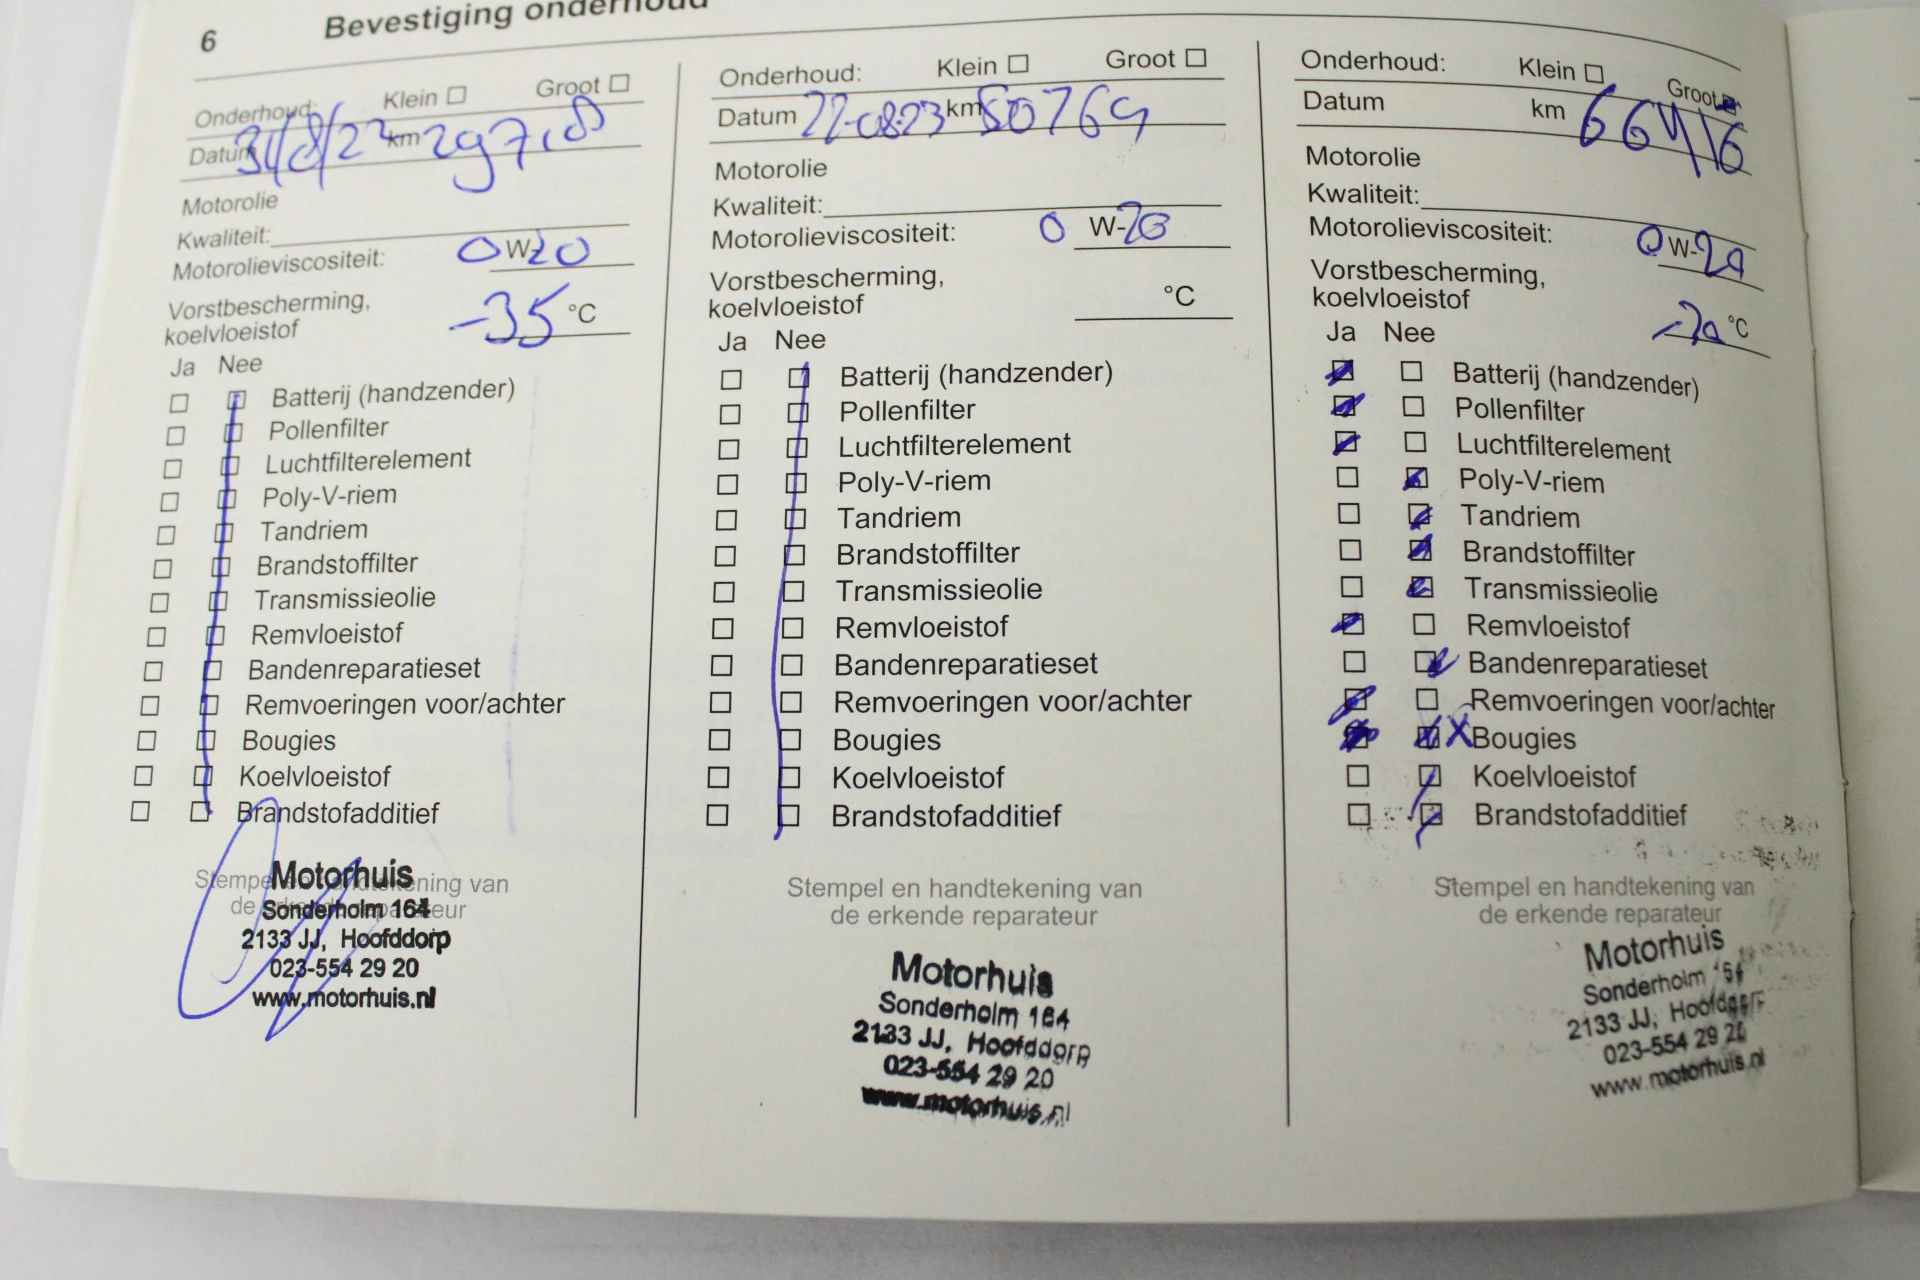 6 Bevestiging onderhoud
Onderhoud: Klein Groot
Datum 31/8/22 km 29718
Motorolie
Kwaliteit:
Motorolieviscositeit: 0 W-20
Vorstbescherming,
koelvloeistof -35 °C
Ja Nee
Batterij (handzender)
Pollenfilter
Luchtfilterelement
Poly-V-riem
Tandriem
Brandstoffilter
Transmissieolie
Remvloeistof
Bandenreparatieset
Remvoeringen voor/achter
Bougies
Koelvloeistof
Brandstofadditief
Stempel en handtekening van
de erkende reparateur
Motorhuis
Sonderholm 164
2133 JJ, Hoofddorp
023-554 29 20
www.motorhuis.nl
Onderhoud: Klein Groot
Datum 22-08-23 km 50769
Motorolie
Kwaliteit:
Motorolieviscositeit: 0 W-20
Vorstbescherming,
koelvloeistof °C
Ja Nee
Batterij (handzender)
Pollenfilter
Luchtfilterelement
Poly-V-riem
Tandriem
Brandstoffilter
Transmissieolie
Remvloeistof
Bandenreparatieset
Remvoeringen voor/achter
Bougies
Koelvloeistof
Brandstofadditief
Stempel en handtekening van
de erkende reparateur
Motorhuis
Sonderholm 164
2133 JJ, Hoofddorp
023-554 29 20
www.motorhuis.nl
Onderhoud: Klein Groot
Datum km 66416
Motorolie
Kwaliteit:
Motorolieviscositeit: 0 W-20
Vorstbescherming,
koelvloeistof °C
Ja Nee
Batterij (handzender)
Pollenfilter
Luchtfilterelement
Poly-V-riem
Tandriem
Brandstoffilter
Transmissieolie
Remvloeistof
Bandenreparatieset
Remvoeringen voor/achter
X Bougies
Koelvloeistof
Brandstofadditief
Stempel en handtekening van
de erkende reparateur
Motorhuis
Sonderholm 164
2133 JJ, Hoofddorp
023-554 29 20
www.motorhuis.nl